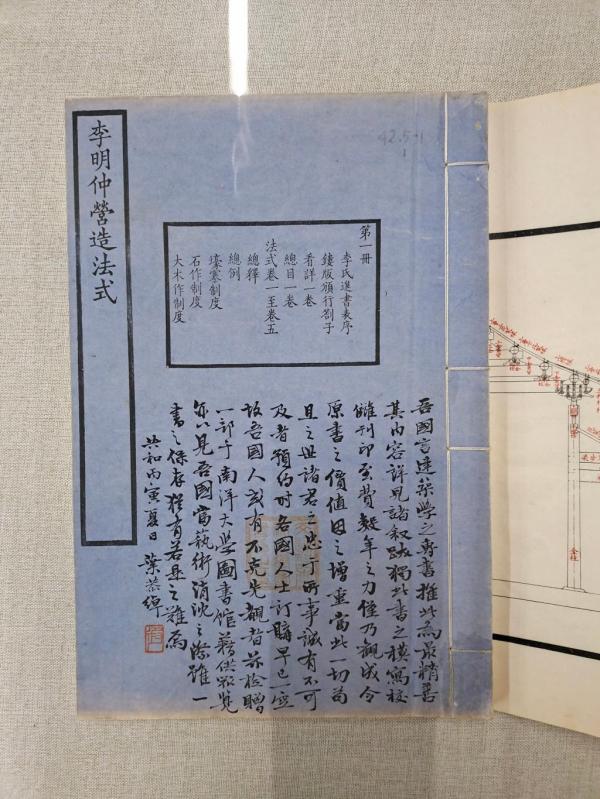 李明仲營造法式
42.5-1
1
第一冊
李氏進書表序
鏤版頒行劄子
看詳一卷
總目一卷
法式卷一至卷五
總釋
總例
壕寨制度
石作制度
大木作制度
吾國言建築學之專書推此為最精善
其內容詳見諸敘跋獨此書之模寫校
讎刊印至費數年之力僅乃觀成今
原書之價值因之增重當此一切苟
且之世諸君之忠于所事誠有不可
及者預約時各國人士訂購早已一空
故吾國人或有不克先覩者茲檢贈
一部于南洋大學圖書館藉供眾覽
亦以見吾國當藝術消沈之際雖一
書之保存猶有若是之難焉
共和丙寅夏日 葉恭綽
金柱